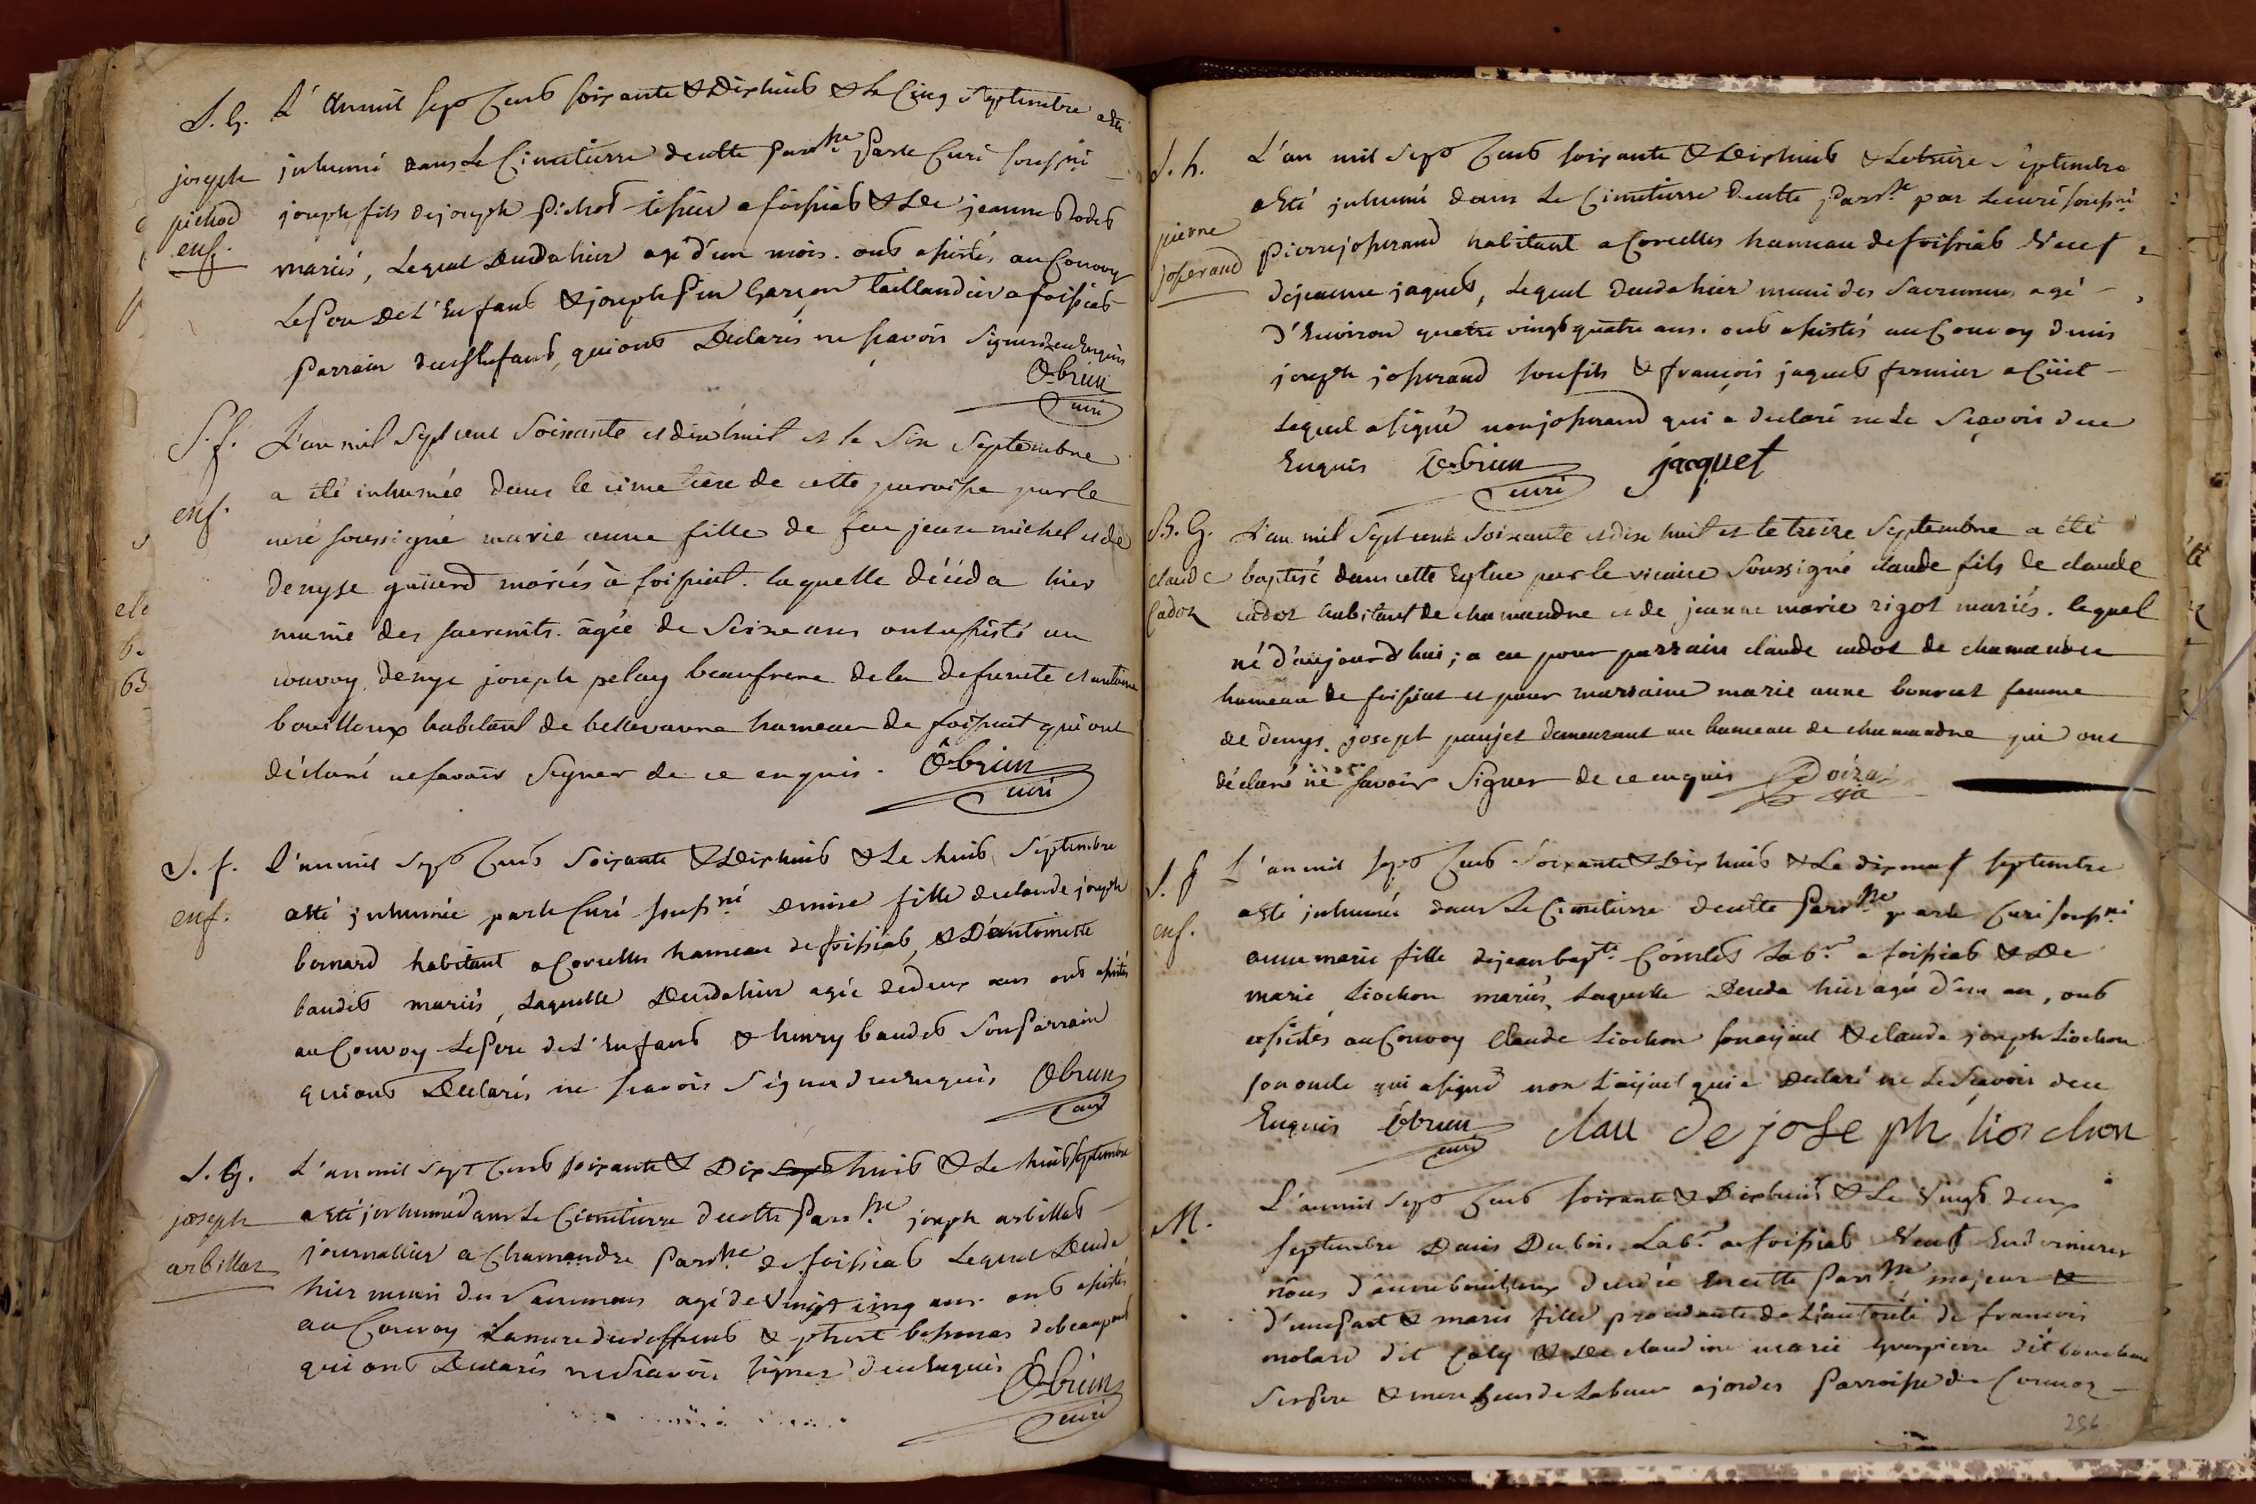 S. G. L'An mil sept Cent soixante & Dixhuit & le Cinq Septembre a été
joseph inhumé dans Le Cimetierre de cette parr.sse par le Curé soussné
pichod joseph fils de joseph pichod tissier a foissiat & de jeanne
enf. mariés, Lequel deceda hier agé d'un mois. ont assistés au Convoy
Le Pere de L'Enfant & joseph garçon taillandier a foissiat
Parrain de l'Enfant, qui ont Declarés ne scavoir signer de ce Enquis
Obrun
curé
S. f. L'an mil sept cent soixante et dix huit et le six septembre
a été inhumée dans le cimetiere de cette paroisse par le
enf. curé soussigné marie anne fille de feu jean michel et de
denyse guierd mariés à foissiat. laquelle décéda hier
munie des sacremts. âgée de seize ans ont assisté au
convoy denys joseph pelay beaufrere de la defunte et antoine
bouilloux habitant de bellevavre hameau de foissiat qui ont
déclaré ne savoir signer de ce enquis. Obrun
curé
S. f. L'an mil sept Cent soixante & Dixhuit & Le huit Septembre
a été inhumée par le Curé soussné denise fille de claude joseph
enf. bernard habitant a Corcelles hameau de foissiat, & D'antoinette
baudet mariés, Laquelle deceda hier agée de deux ans ont assistés
au Convoy Le Pere de L'Enfant & henry baudet son Parrain
qui ont Declarés ne scavoir signer de ce enquis Obrun
curé
S. G. L'an mil sept Cent soixante & Dix huit & Le huit septembre
joseph a été inhumé dans Le Cimetierre de cette Parr.sse joseph arbillat
arbillat journallier a Chamandre Parr.sse de foissiat Lequel deceda
hier muni des Sacremens agé de vingt cinq ans ont assistés
au Convoy La mere du deffunt &
qui ont Declarés ne scavoir signer de ce enquis Obrun
curé
S. h. L'an mil sept Cent soixante & Dixhuit & Le treize septembre
a été inhumé dans Le Cimetierre de cette Parr.sse par Le curé soussné
pierre Pierre josserand habitant a Corcelles hameau de foissiat veuf
josserand de jeanne jaquet, Lequel deceda hier muni des Sacremens agé
d'Environ quatre vingt quatre ans. ont assistés au Convoy denis
joseph josserand son fils & françois jaquet fermier a Cuet
Lequel a signé non josserand qui a declaré ne Le sçavoir de ce
Enquis Obrun jacquet
curé
B. G. L'an mil sept cent soixante et dix huit et le treize septembre a été
claude baptisé dans cette Eglise par le vicaire soussigné claude fils de claude
Cadot cadot habitant de chamandre et de jeanne marie rigot mariés. lequel
né d'aujourd'hui; a eu pour parrain claude cadot de chamandre
hameau de foissiat et pour marraine marie anne femme
de denys joseph paujet demeurant au hameau de chamandre qui ont
déclaré ne savoir signer de ce enquis
S. f L'an mil sept Cent soixante & Dix huit & Le dix neuf septembre
a été inhumée dans Le Cimetierre de cette Parr.sse par le Curé soussné
enf. anne marie fille de jean bapte. Comtet Labr. a foissiat & De
marie Liochon mariés, Laquelle deceda hier agée d'un an, ont
assistés au Convoy Claude Liochon son ayeul & claude joseph Liochon
son oncle qui a signé non L'aÿeul qui a declaré ne Le sçavoir de ce
Enquis Obrun clau de joSe ph liochon
curé
M. L'an mil sept Cent soixante & Dixhuit & Le Vingt deux
septembre Denis Dubois Labr. a foissiat veuf
d'anne bouilloux decedée en cette Parr.sse majeur
d'une part & marie fille procedante de L'autorité de francois
molard dit Coly & de claudine marie
ses Pere & mere gens de Labeur a jordes Parroisse de
256